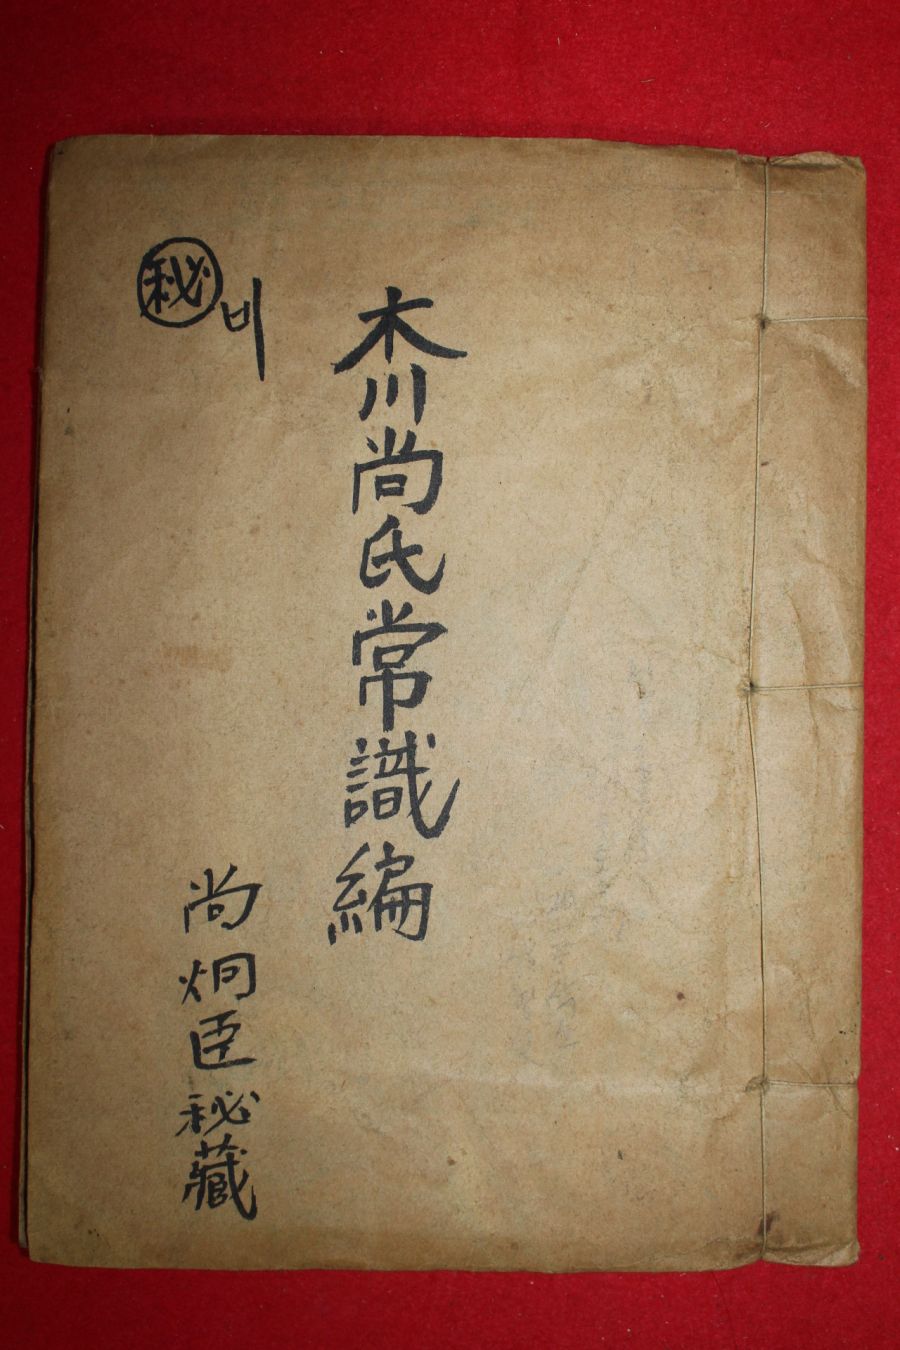 木川尚氏常識編
㊙비
尚炯臣秘藏